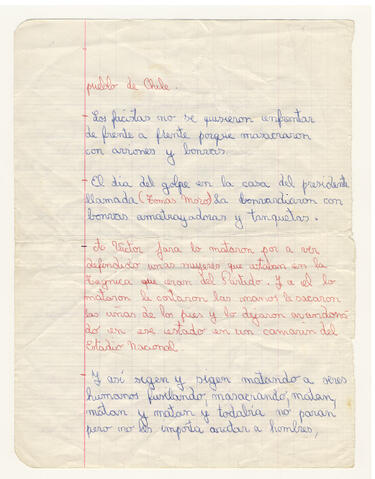 pueblo de Chile.
- Los facistas no se quisieron enfrentar
de frente a frente porque masacraron
con aviones y bonvas.
- El dia del golpe en la casa del presidente
llamada (Tomas Moro) la bonvardiaron con
bonvas amatrayadoras y tanquetas.
- A Victor Jara lo mataron por a ver
defendido unas mujeres que estaban en la
Tegnica que eran del Partido. Y a el lo
mataron le cortaron las manos le sacaron
las uñas de los pies y lo dejaron avandona
do en ese estado en un camarin del
Estadio Nacional
- Y así sigen y sigen matando a seres
humanos fusilando, masacrando, matan,
matan y matan y todabia no paran
pero no les importa a hombres,